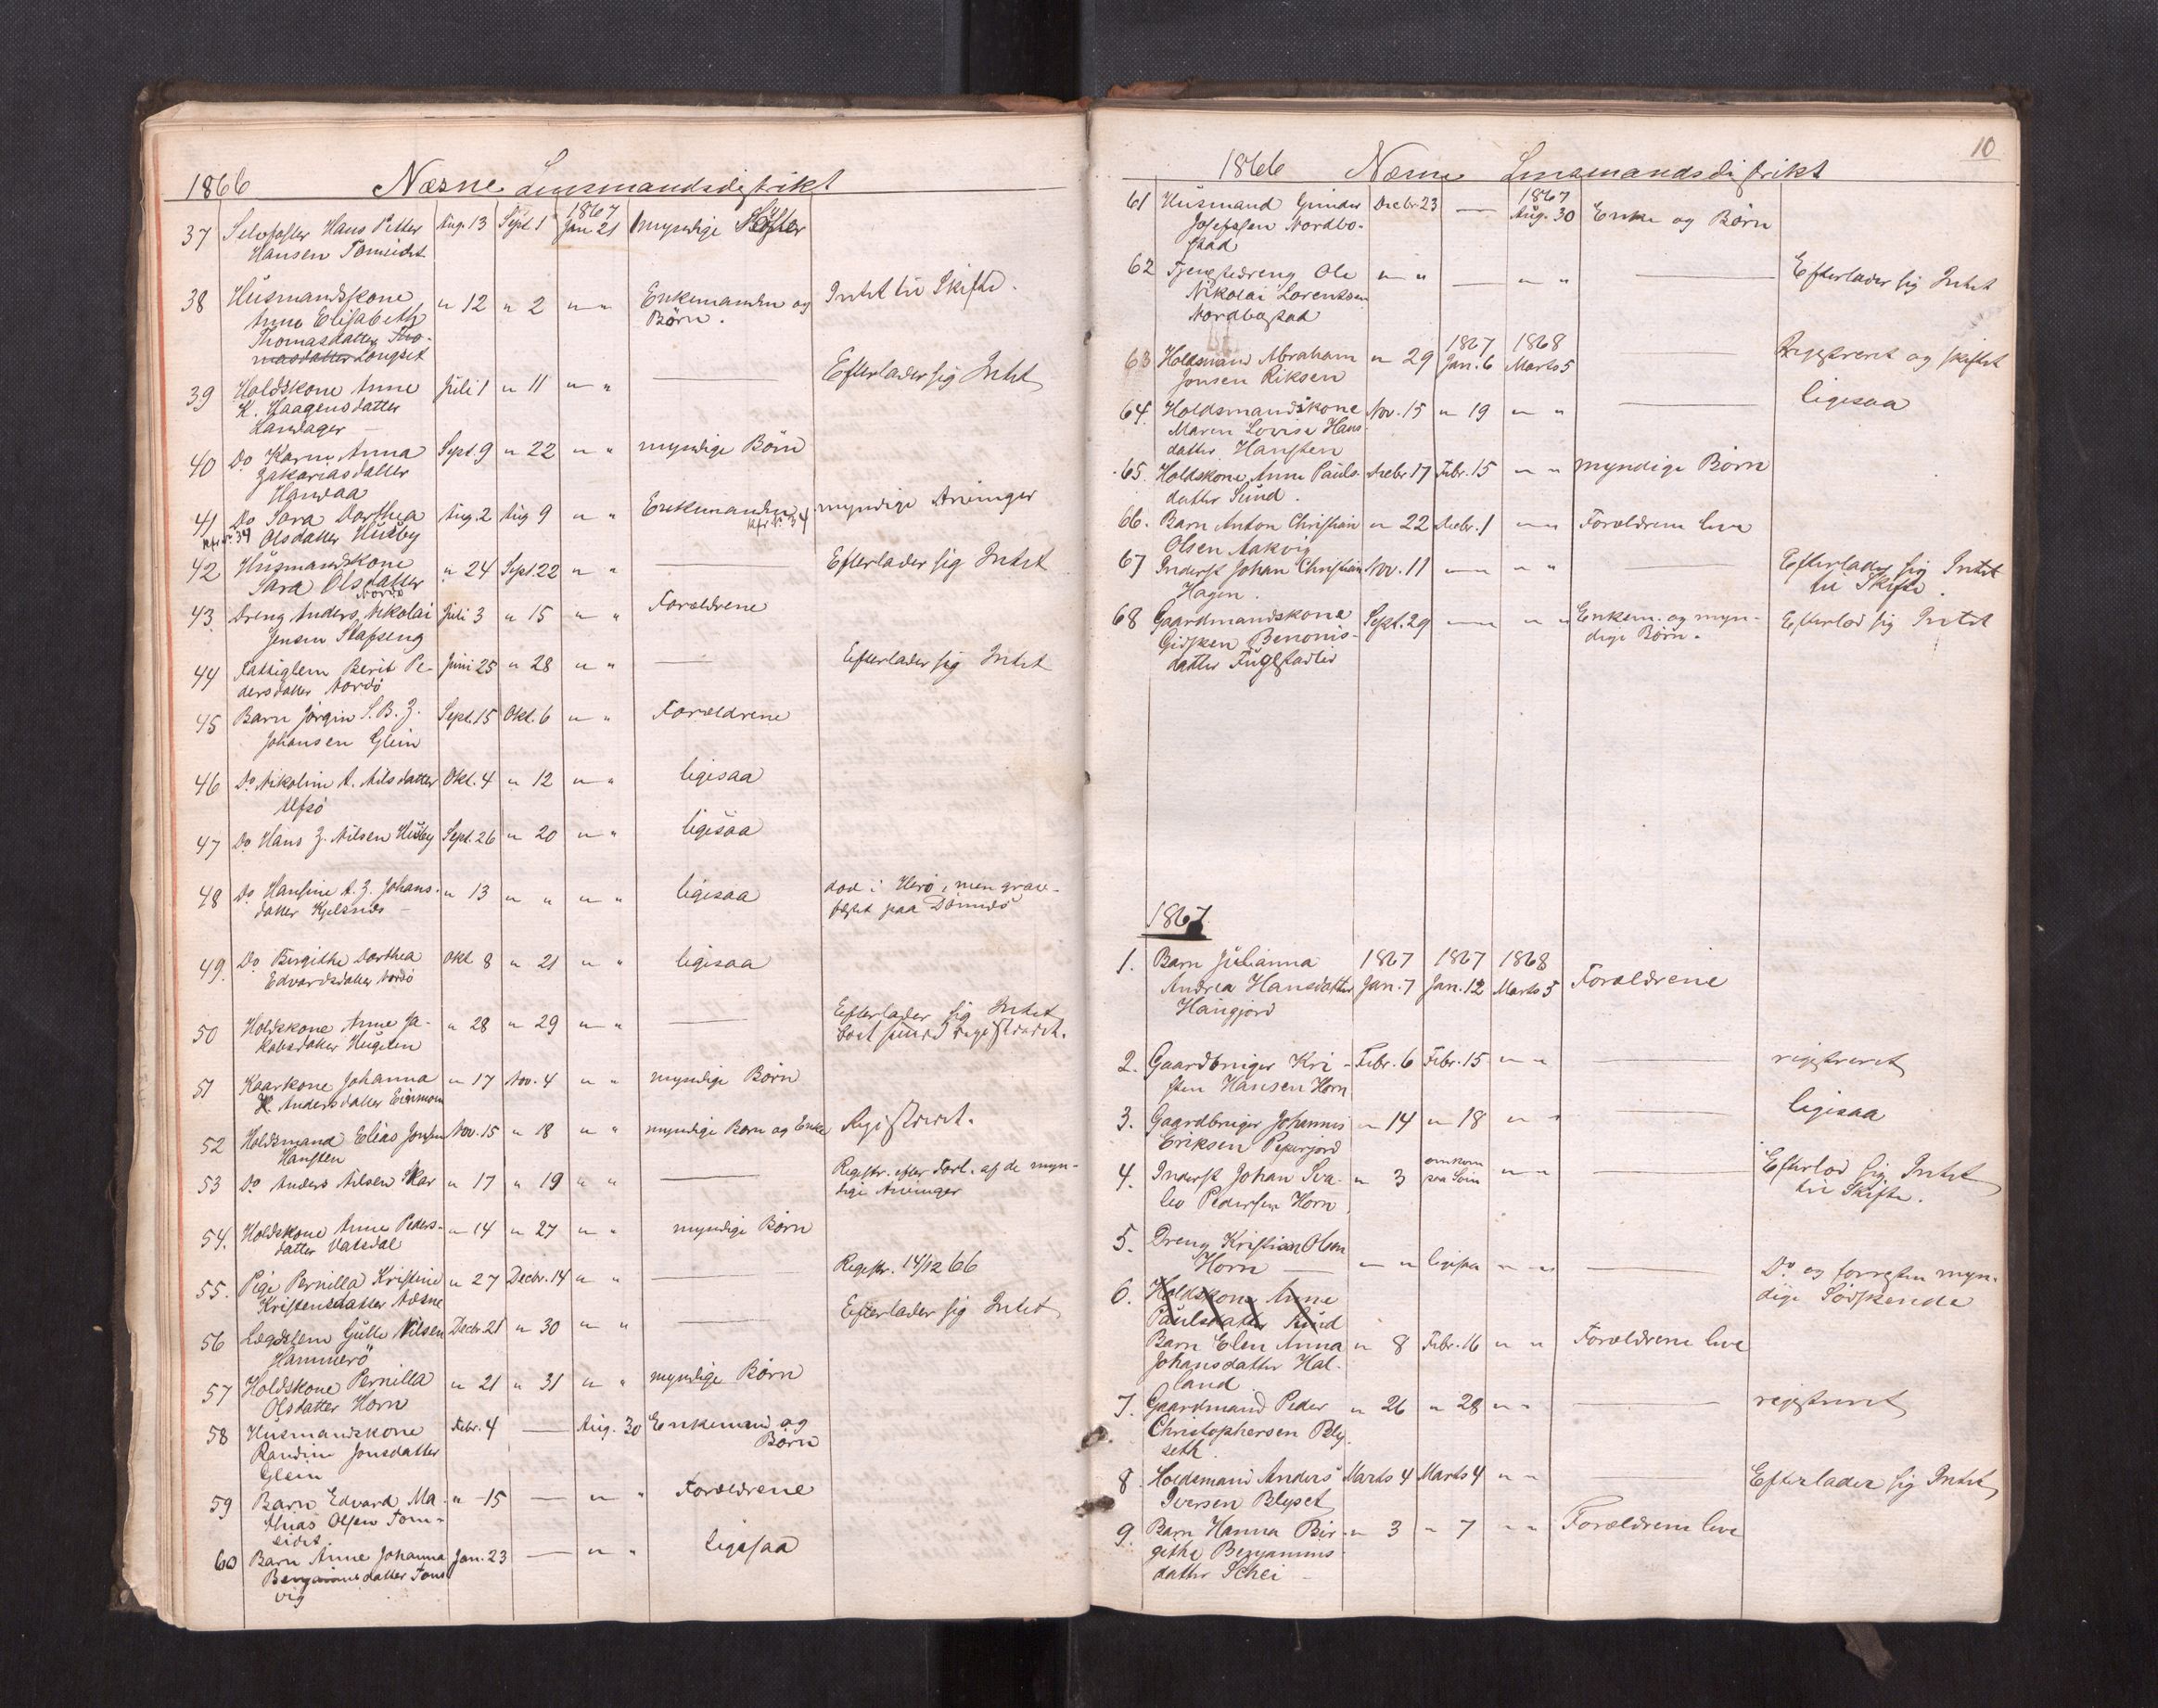 1866 Næsne Lensmandsdistrikt
37 Selvfoster Hans Petter Aug. 13 Sept. 1 1867 Jan 21 myndige
Hansen Tomeidet
38 Husmandskone " 12 " 2 " " Enkemanden og Intet til Skifte.
Anne Elisabeth Børn.
Thomasdatter Tho-
masdatter Longset
39 Holdskone Anne Juli 1 " 11 " " — Efterlader sig Intet
K. Haagensdatter
Landager
40 Do Karen Anna Sept. 9 " 22 " " myndige Børn
Zakariasdatter
Handaa
41 Do Sara Dorthea Aug. 2 Aug 9 " " Enkemanden myndige Arvinger
Kfr. Nr. 39 Olsdatter Husby Kfr. Nr. 34
42 Husmandskone " 24 Sept. 22 " " — Efterlader sig Intet
Sara Olsdatter
Nordö
43 Dreng Anders Nikolai Juli 3 " 15 " " Forældrene
Jensen Slapseng
44 Fattiglem Berit Pe- Juni 25 " 28 " " — Efterlader sig Intet
dersdatter Nordö
45 Barn Jörgin S. B. Z. Sept. 15 Okt. 6 " " Forældrene
Johansen Glein
46 Do Nikoline A. Nilsdatter Okt. 4 " 12 " " ligesaa
Ulfsö
47 Do Hans Z. Nilsen Husby Sept. 26 " 20 " " ligesaa
48 Do Hansine A. Z. Johans- " 13 " " " " ligesaa död i Herö, men grav-
datter Kjelsnes fæstet paa Dönnes
49. Do Birgithe Dorthea Okt 8 " 21 " " ligesaa
Edvardsdatter Nordö
50 Holdskone Anne Ja- " 28 " 29 " " — Efterlader sig Intet
kobsdatter Hugelen registreret.
51 Kaarkone Johanna " 17 Nov. 4 " " myndige Børn
K. Andersdatter
52 Holdsmand Elias Jensen Nov. 15 " 18 " " myndige Børn og Enke Registreret.
Hansten
53 Do Anders Nilsen Skar " 17 " 19 " " — Registr. efter Forl. af de myn-
dige Arvinger
54. Holdskone Anne Peders- " 14 " 27 " " myndige Børn
datter Vatsdal
55. Pige Pernilla Kristine " 27 Decbr. 14 " " — Registr. 14/12 66
Kristensdatter Næsne
56 Lægdslem Gulle Nilsen Decbr 21 " 30 " " — Efterlader sig Intet
Hammerö
57 Holdskone Pernilla " 21 " 31 " " myndige Børn
Olsdatter Horn
58 Husmandskone Febr. 4 — Aug. 30 Enkemand og
Randine Jonsdatter Børn
Glein
59 Barn Edvard Ma- " 15 — " " Forældrene
thias Olsen Tom-
eidet
60 Barn Anne Johanna Jan. 23 — " " ligesaa
Benjaminsdatter Tons
vig
10
1866 Næsne Lensmandsdistrikt
61 Husmand Gunder Decbr 23 — 1867 Aug. 30 Enke og Børn
Josefssen Nordbo-
stad
62 Tjenestedreng Ole " " — " " — Efterlader sig Intet
Nikolai Lorentsen
Nordbostad
63 Holdsmand Abraham " 29 1867 Jan. 6 1868 Marts 5 Registreret og skiftet
Jonsen Riksen
64. Holdsmandskone Nov. 15 " 19 " " — ligesaa
Maren Lovise Hans-
datter Hansten
65. Holdskone Anne Pauls- Decbr 17 Febr. 15 " " myndige Børn
datter Sund.
66. Barn Anton Christian " 22 Decbr. 1 " " Forældrene leve
Olsen Aakvig
67 Inderst Johan Christian Nov. 11 " " " " — Efterlader sig Intet
Hagen. til Skifte.
68 Gaardmandskone Sept. 29 " " " " Enkem. og myn- Efterlod sig Intet
Gidsken Benonis- dige Børn.
datter Fuglstadlid
1867
1. Barn Julianna 1867 1867 1868
Andrea Hansdatter Jan. 7 Jan. 12 Marts 5 Forældrene
Haugjord
2. Gaardbruger Kri- Febr. 6 Febr. 15 " " — registreret
sten Hansen Horn
3. Gaardbruger Johannes " 14 " 18 " " — ligesaa
Eriksen Peperjord
4. Inderst Johan Sva- " 3 omkom paa Söen " " — Efterlod sig Intet
leo Pedersen Horn til Skifte.
5. Dreng Kristian Olsen
Horn — " " ligesaa " " — Do og forresten myn-
6. Holdskone Anne dige Södskende
Paulsdatter Sund
Barn Elen Anna " 8 Febr. 16 " " Forældrene leve
Johansdatter Hal-
land
7. Gaardmand Peder " 26 " 28 " " — registreret
Christophersen Bly-
seth
8. Holdsmand Anders Marts 4 Marts 4 " " Efterlader sig Intet
Iversen Blyset
9. Barn Hanna Bir- " 3 " 7 " " Forældrene leve
githe Benjamins-
datter Schei